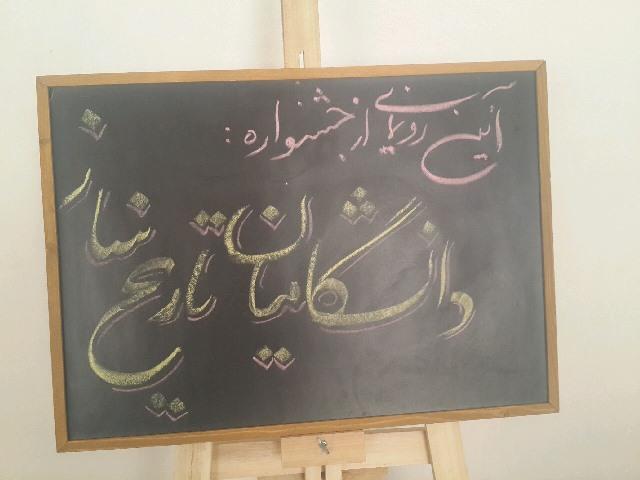 آئین رویای از جشنواره :
دانشگاهیان تاریخ ساز